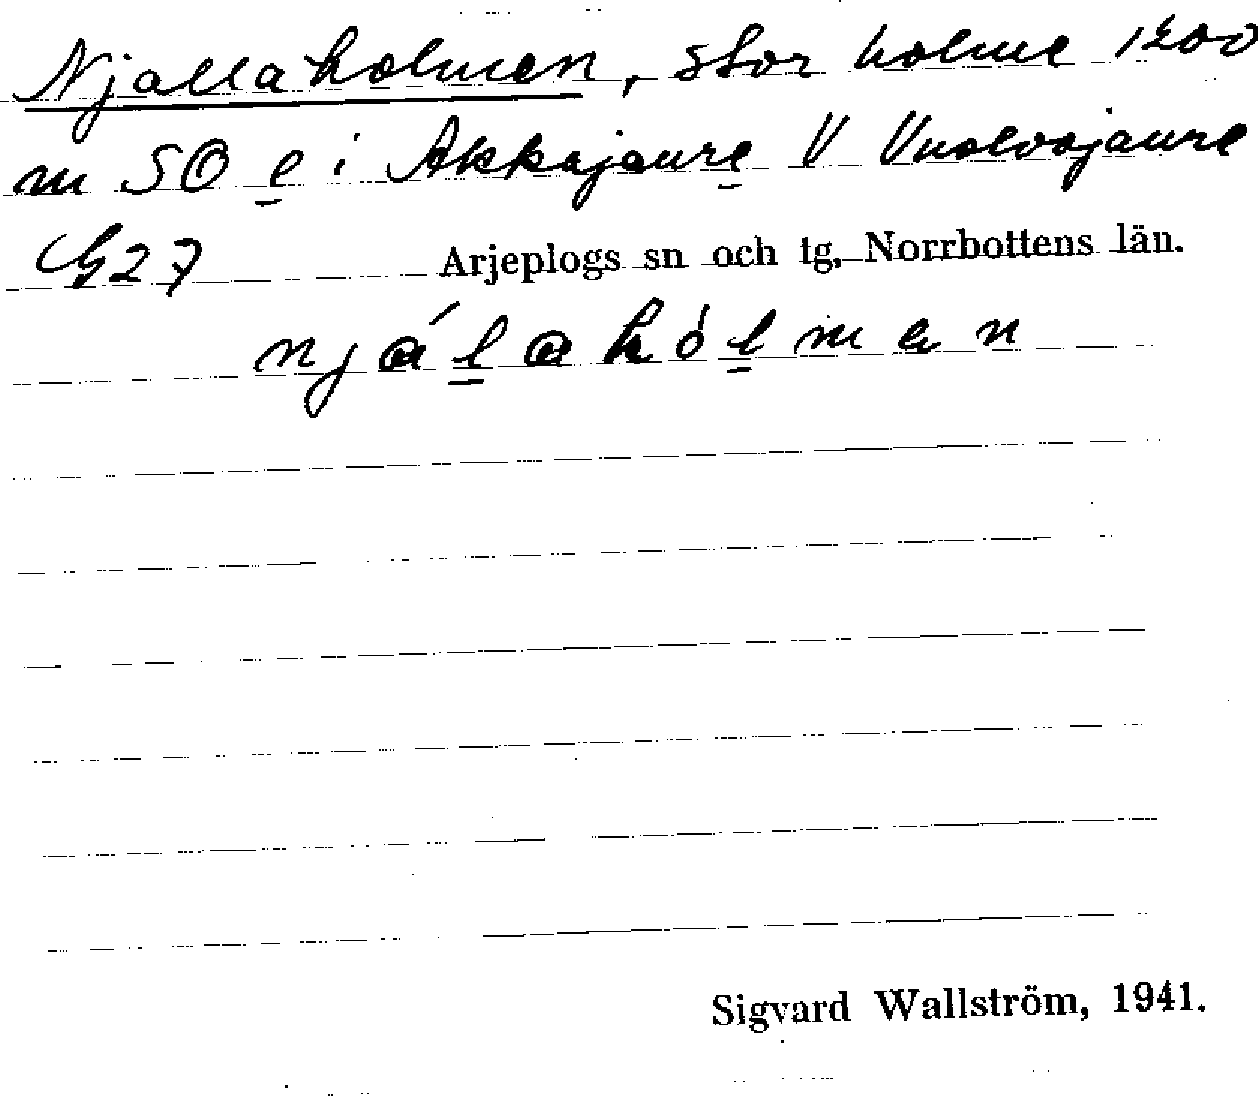 Njallaholmen, stor holme 1200
m SO l i Akkajaure V Vuolvojaure
G27 Arjeplogs sn och tg, Norrbottens län.
njálahólmen
Sigvard Wallström, 1941.